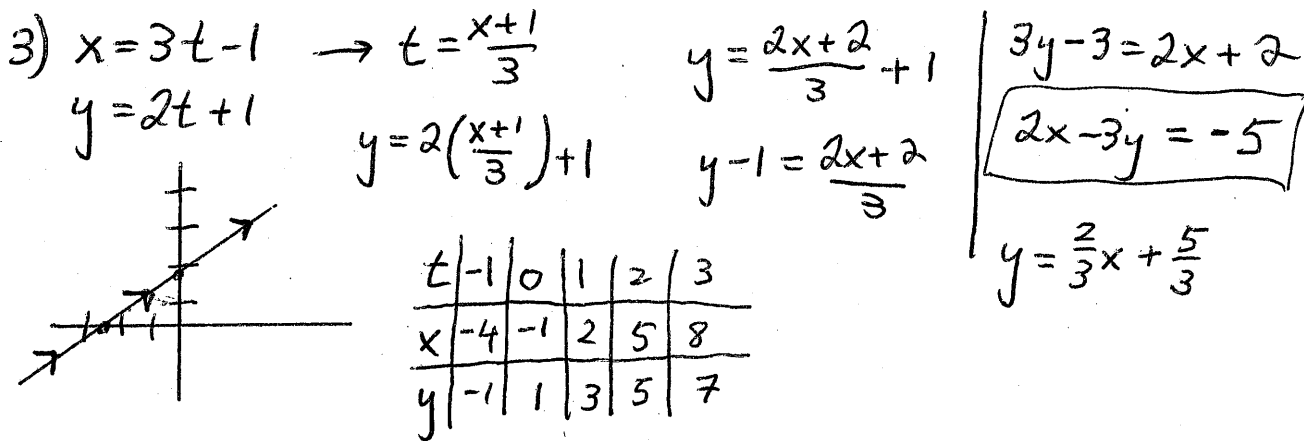 3) x = 3t - 1 → t = (x+1)/3
y = 2t + 1
y = 2((x+1)/3) + 1
y = (2x+2)/3 + 1
y - 1 = (2x+2)/3
3y - 3 = 2x + 2
2x - 3y = -5
y = 2/3 x + 5/3
t | -1 | 0 | 1 | 2 | 3
x | -4 | -1 | 2 | 5 | 8
y | -1 | 1 | 3 | 5 | 7